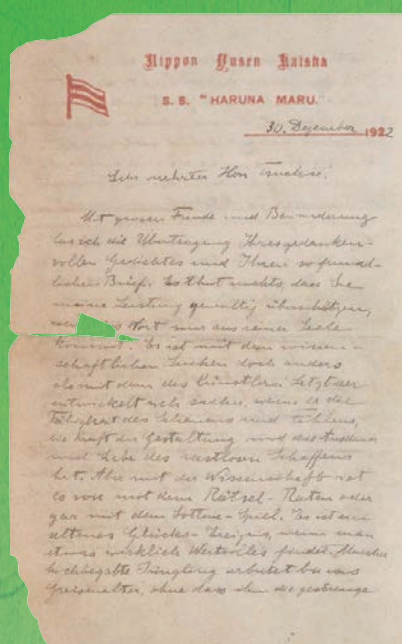 Nippon Yusen Kaisha
S. S. "HARUNA MARU."
30. Dezember 1922
Sehr geehrter Herr Tsuchiie!
Mit grosser Freude und Bewunderung
las ich die Übertragung Ihres gedanken-
vollen Gedichtes und Ihren so freund-
lichen Brief. Es thut nichts, dass Sie
meine Leistung gewaltig überschätzen,
wenn das Wort nur aus reiner Seele
kommt. Es ist mit dem wissen-
schaftlichen Suchen doch anders
als mit dem des Künstlers. Letzterer
entwickelt sich sicher, wenn er die
Fähigkeit des Schauens und Fühlens,
die Kraft der Gestaltung und
und Liebe des rastlosen Schaffens
hat. Aber mit der Wissenschaft ist
es wie mit dem Rätsel-Raten oder
gar mit dem Lotterie-Spiel. Es ist ein
seltenes Glücks-Ereignis, wenn man
etwas wirklich Wertvolles findet. Mancher
hochbegabte Jüngling arbeitet bis ins
Greisenalter, ohne dass ihm die